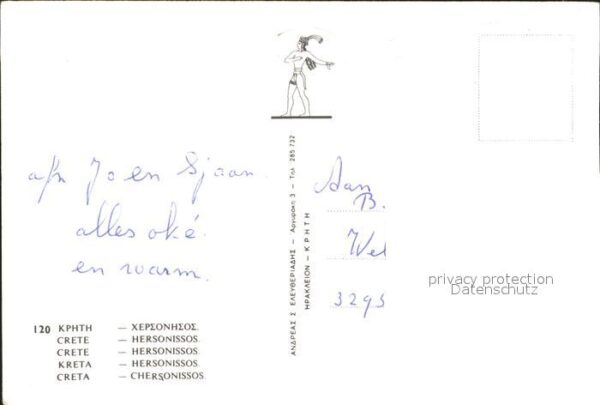 afz Jo en Sjaan.
alles oké.
en warm.
120 ΚΡΗΤΗ — ΧΕΡΣΟΝΗΣΟΣ.
CRETE — HERSONISSOS.
CRETE — HERSONISSOS.
KRETA — HERSONISSOS.
CRETA — CHERSONISSOS
ΑΝΔΡΕΑΣ Σ ΕΛΕΥΘΕΡΙΑΔΗΣ — Αργυράκη 3 — Τηλ. 285 732
ΗΡΑΚΛΕΙΟΝ - ΚΡΗΤΗ
Aan
B.
Wel
3295
privacy protection
Datenschutz